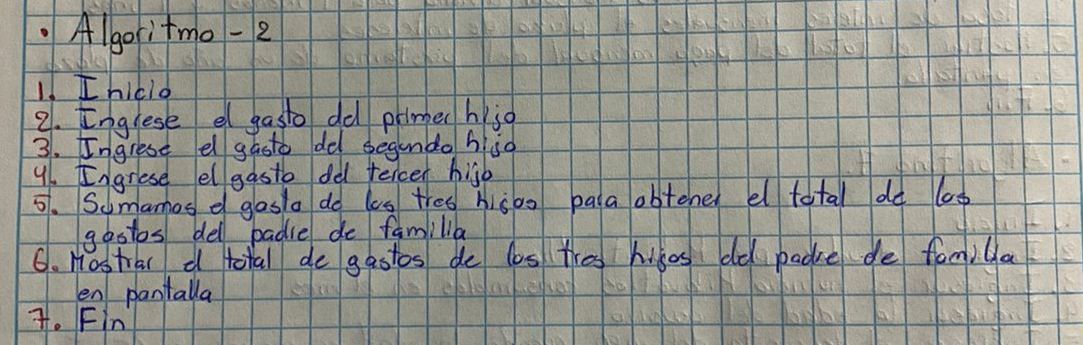 • Algoritmo - 2
1. Inicio
2. Ingrese el gasto del primer hijo
3. Ingrese el gasto del segundo hijo
4. Ingrese el gasto del tercer hijo
5. Sumamos el gasto de los tres hijos para obtener el total de los
gastos del padre de familia
6. Mostrar el total de gastos de los tres hijos del padre de familia
en pantalla
7. Fin